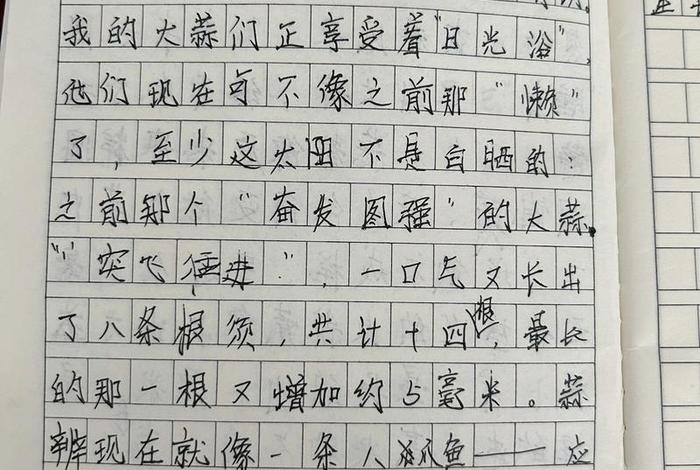 我的大蒜们正享受着"日光浴",
他们现在可不像之前那"懒"
了,至少这太阳不是白晒的:
之前那个"奋发图强"的大蒜
"突飞猛进",一口气又长出
了八条根须,共计十四根,最长
的那一根又增加约5毫米。蒜
辨现在就像一条八爪鱼——应